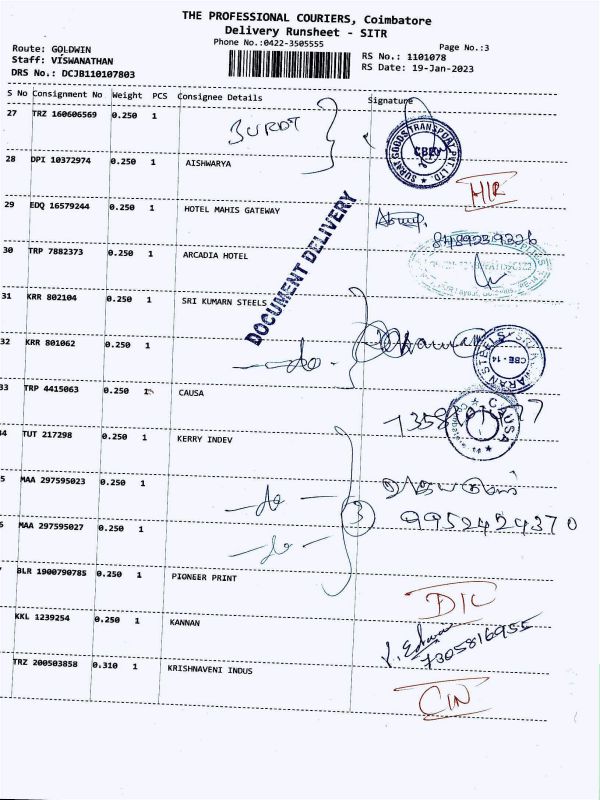 THE PROFESSIONAL COURIERS, Coimbatore
Delivery Runsheet - SITR
Phone No.:0422-3505555
Page No.:3
Route: GOLDWIN
Staff: VISWANATHAN
DRS No.: DCJB110107803
RS No.: 1101078
RS Date: 19-Jan-2023
S No Consignment No Weight PCS Consignee Details Signature
27 TRZ 160606569 0.250 1
SURAT GOODS TRANSPORT PVT LTD
28 DPI 10372974 0.250 1 AISHWARYA
29 EDQ 16579244 0.250 1 HOTEL MAHIS GATEWAY
DOCUMENT DELIVERY
30 TRP 7882373 0.250 1 ARCADIA HOTEL
31 KRR 802104 0.250 1 SRI KUMARN STEELS
32 KRR 801062 0.250 1 -do-
CBE - 14
33 TRP 4415063 0.250 1 CAUSA
CAUSA
34 TUT 217298 0.250 1 KERRY INDEV
5 MAA 297595023 0.250 1 -do-
3
9952424370
6 MAA 297595027 0.250 1 -do-
BLR 1900790785 0.250 1 PIONEER PRINT
KKL 1239254 0.250 1 KANNAN
7305816955
TRZ 200503858 0.310 1 KRISHNAVENI INDUS